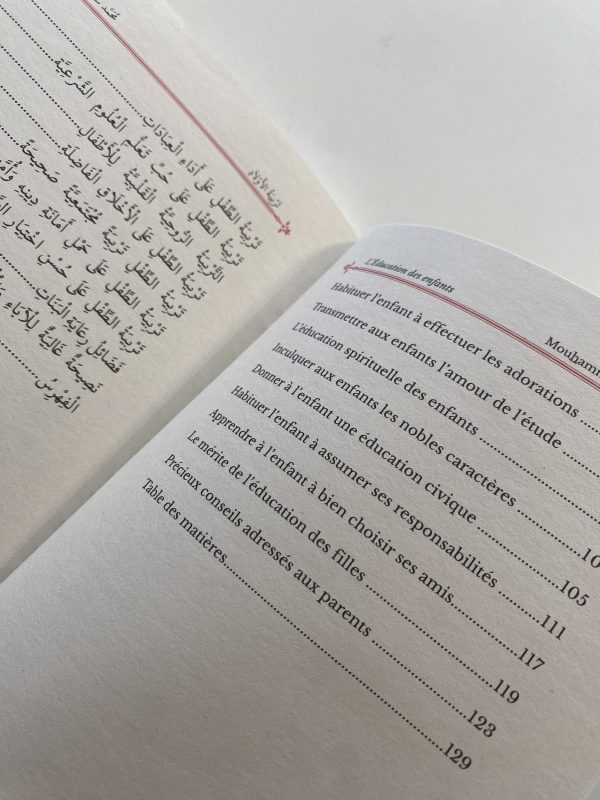 تَرْبِيَةُ الأَوْلَادِ
تَرْبِيَةُ الطِّفْلِ عَلَى أَدَاءِ الْعِبَادَاتِ..........
تَرْبِيَةُ الطِّفْلِ عَلَى حُبِّ تَعَلُّمِ الْعُلُومِ الشَّرْعِيَّةِ
التَّرْبِيَةُ الرُّوحِيَّةُ الْقَلْبِيَّةُ لِلْأَطْفَالِ..........
تَرْبِيَةُ الطِّفْلِ عَلَى الْأَخْلَاقِ الْفَاضِلَةِ..........
تَرْبِيَةُ الطِّفْلِ تَرْبِيَةً مُجْتَمَعِيَّةً صَحِيحَةً
تَرْبِيَةُ الطِّفْلِ عَلَى حَمْلِ أَمَانَةِ دِينِهِ
تَرْبِيَةُ الطِّفْلِ عَلَى حُسْنِ اخْتِيَارِ
فَضَائِلُ رِعَايَةِ الْبَنَاتِ..........
نَصِيحَةٌ غَالِيَةٌ لِلْآبَاءِ
الْفِهْرِسُ..........
L'Éducation des enfants Mouhamm
Habituer l'enfant à effectuer les adorations ..........
Transmettre aux enfants l'amour de l'étude ..........
L'éducation spirituelle des enfants ..........
Inculquer aux enfants les nobles caractères .......... 10
Donner à l'enfant une éducation civique ..........105
Habituer l'enfant à assumer ses responsabilités ..........111
Apprendre à l'enfant à bien choisir ses amis..........117
Le mérite de l'éducation des filles ..........119
Précieux conseils adressés aux parents ..........123
Table des matières..........129